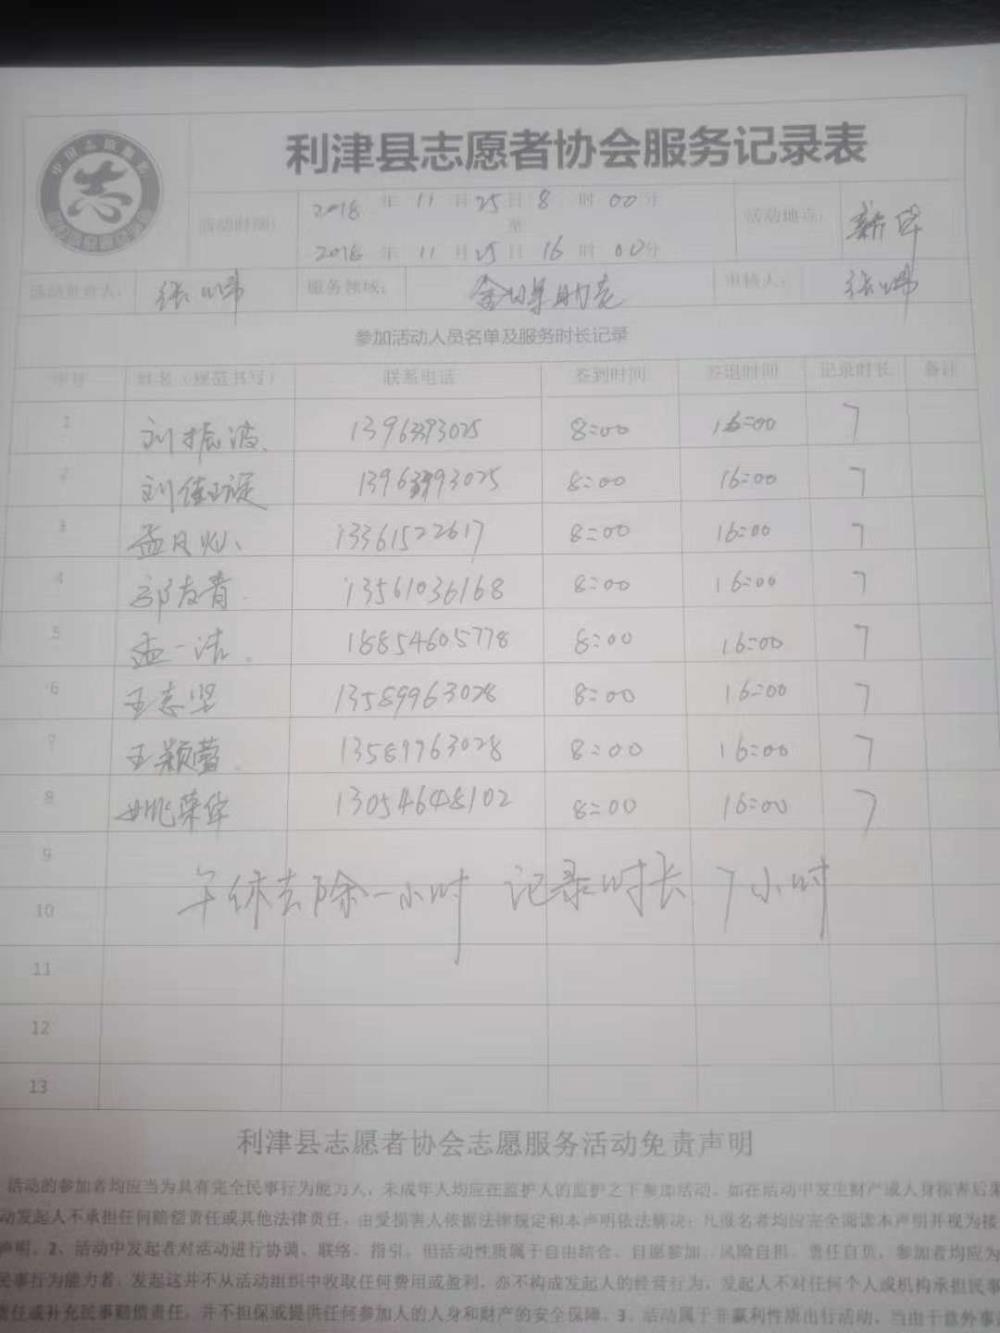 利津县志愿者协会服务记录表
活动时间: 2018 年 11 月 25 日 8 时 00 分
至
2018 年 11 月 25 日 16 时 00 分
活动地点: 新华
活动负责人: 张 服务领域: 审核人: 张
参加活动人员名单及服务时长记录
序号 姓名（规范书写） 联系电话 签到时间 签退时间 记录时长 备注
1 刘振波 13963393025 8:00 16:00 7
2 刘佳璇 13963393025 8:00 16:00 7
3 孟 13361522617 8:00 16:00 7
4 郭友青 13561036168 8:00 16:00 7
5 孟一洁 18854605778 8:00 16:00 7
6 王志坚 13589963028 8:00 16:00 7
7 王颖莹 13589963028 8:00 16:00 7
8 姚荣华 13054648102 8:00 16:00 7
9
10
午休去除一小时 记录时长 7小时
11
12
13
利津县志愿者协会志愿服务活动免责声明
活动的参加者均应当为具有完全民事行为能力人，未成年人均应在监护人的监护之下参加活动。如在活动中发生财产或人身损害后果
动发起人不承担任何赔偿责任或其他法律责任，由受损害人依据法律规定和本声明依法解决；凡报名者均应完全阅读本声明并视为接
声明。2、活动中发起者对活动进行协调、联络、指引，但活动性质属于自由结合、自愿参加、风险自担、责任自负。参加者均应为
民事行为能力者，发起这并不从活动组织中收取任何费用或盈利，亦不构成发起人的经营行为，发起人不对任何个人或机构承担民事
责任或补充民事赔偿责任，并不担保或提供任何参加人的人身和财产的安全保障。3、活动属于非赢利性质出行活动，当由于意外事